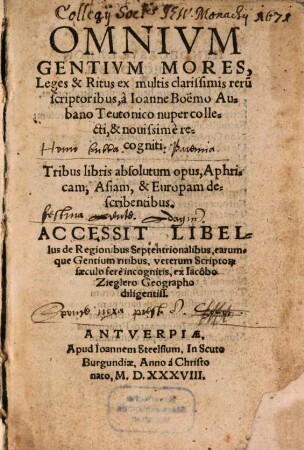 Collegij Societ. Jesu. Monachij 1671
OMNIVM
GENTIVM MORES,
Leges & Ritus ex multis clarissimis rerũ
scriptoribus, à Ioanne Boëmo Au-
bano Teutonico nuper colle-
cti, & nouissimè re-
Homo bulla cogniti.
Tribus libris absolutum opus, Aphri-
cam, Asiam, & Europam de-
scribentibus.
festina
ACCESSIT LIBEL-
lus de Regionibus Septentrionalibus, earum-
que Gentium ritibus, veterum Scriptorũ
sæculo ferè incognitis, ex Iacôbo
Zieglero Geographo
diligentiss.
ANTVERPIÆ.
Apud Ioannem Steelsium, In Scuto
Burgundiæ, Anno à Christo
nato, M. D. XXXVIII.